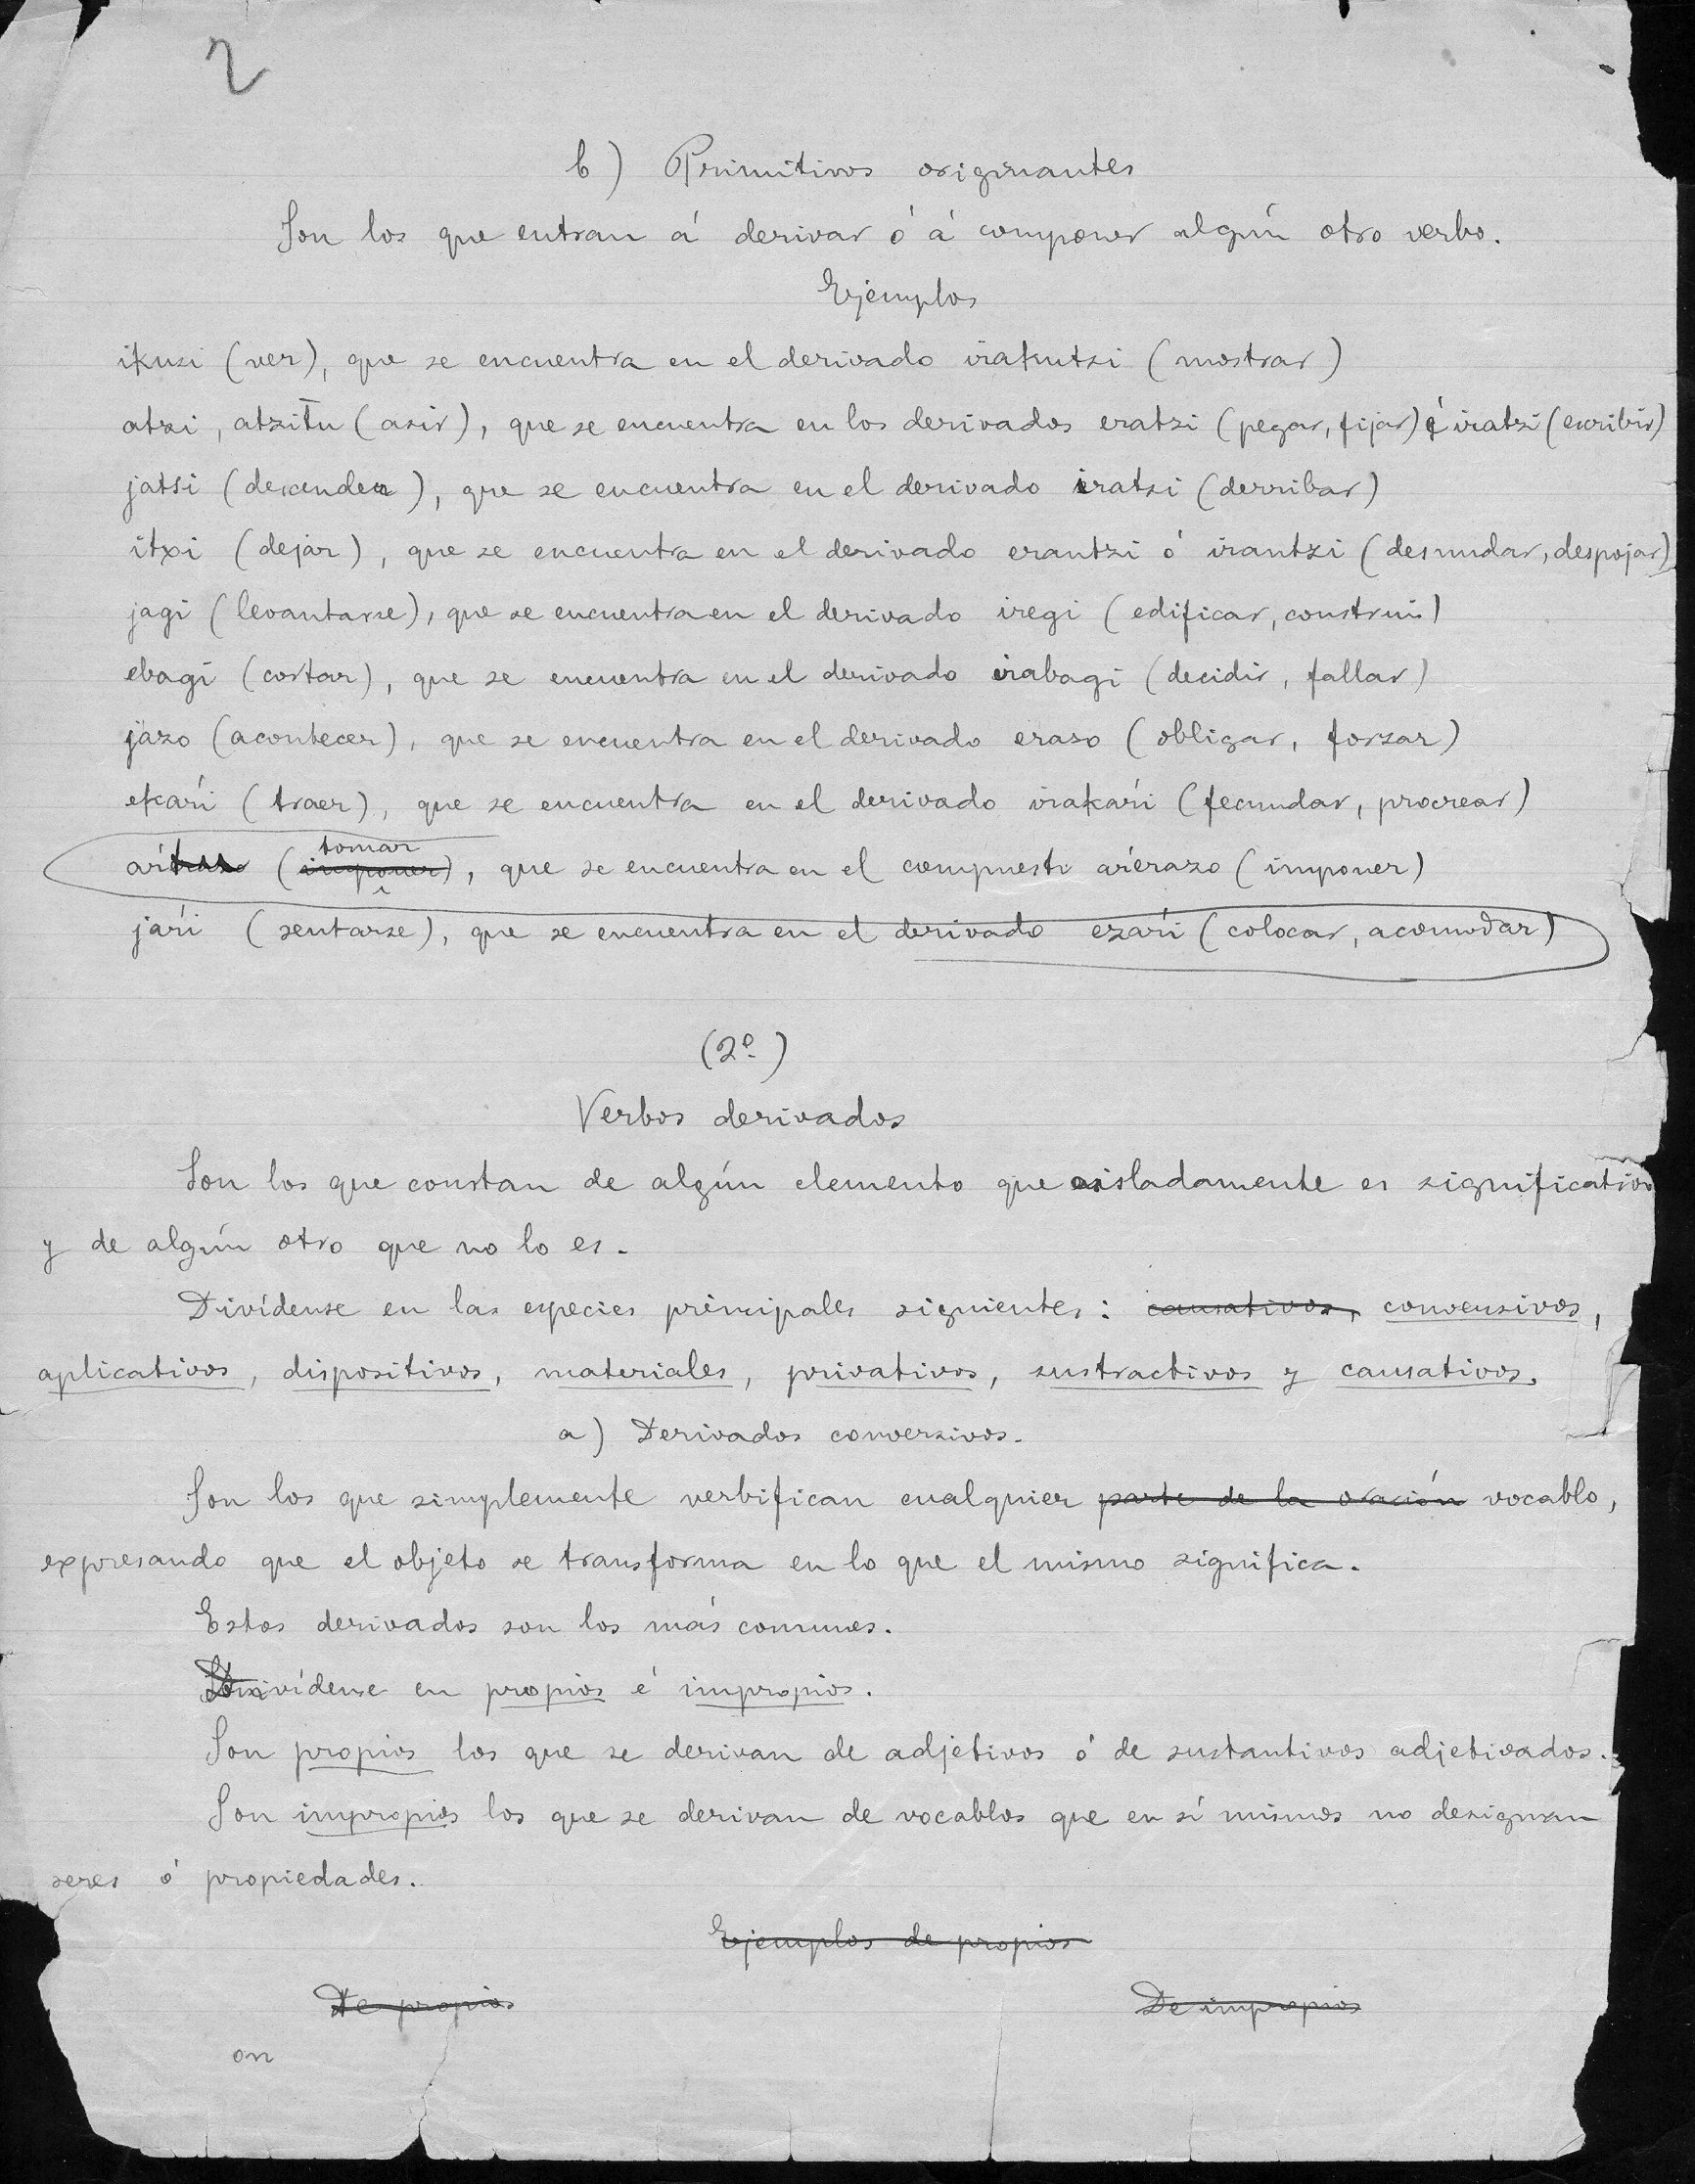 2
b) Primitivos originantes
Son los que entran á derivar ó á componer algún otro verbo.
Ejemplos
ikusi (ver), que se encuentra en el derivado irakutsi (mostrar)
atzi, atzitu (asir), que se encuentra en los derivados eratzi (pegar, fijar) é iratzi (escribir)
jatsi (descender), que se encuentra en el derivado iratsi (derribar)
itxi (dejar), que se encuentra en el derivado erantzi ó irantzi (desnudar, despojar)
jagi (levantarse), que se encuentra en el derivado iregi (edificar, construir)
ebagi (cortar), que se encuentra en el derivado irabagi (decidir, fallar)
jazo (acontecer), que se encuentra en el derivado erazo (obligar, forzar)
ekaŕi (traer), que se encuentra en el derivado irakaŕi (fecundar, procrear)
aŕ (imponer tomar), que se encuentra en el compuesto aŕerazo (imponer)
jaŕi (sentarse), que se encuentra en el derivado ezaŕi (colocar, acomodar)
(2º)
Verbos derivados
Son los que constan de algún elemento que aisladamente es significativo
y de algún otro que no lo es.
Divídense en las especies principales siguientes: causativos, conversivos,
aplicativos, dispositivos, materiales, privativos, sustractivos y causativos.
a) Derivados conversivos.
Son los que simplemente verbifican cualquier parte de la oración vocablo,
expresando que el objeto se transforma en lo que el mismo significa.
Estos derivados son los más comunes.
Divídense en propios é impropios.
Son propios los que se derivan de adjetivos ó de sustantivos adjetivados.
Son impropios los que se derivan de vocablos que en sí mismos no designan
seres ó propiedades.
Ejemplos de propios
De propios De impropios
on